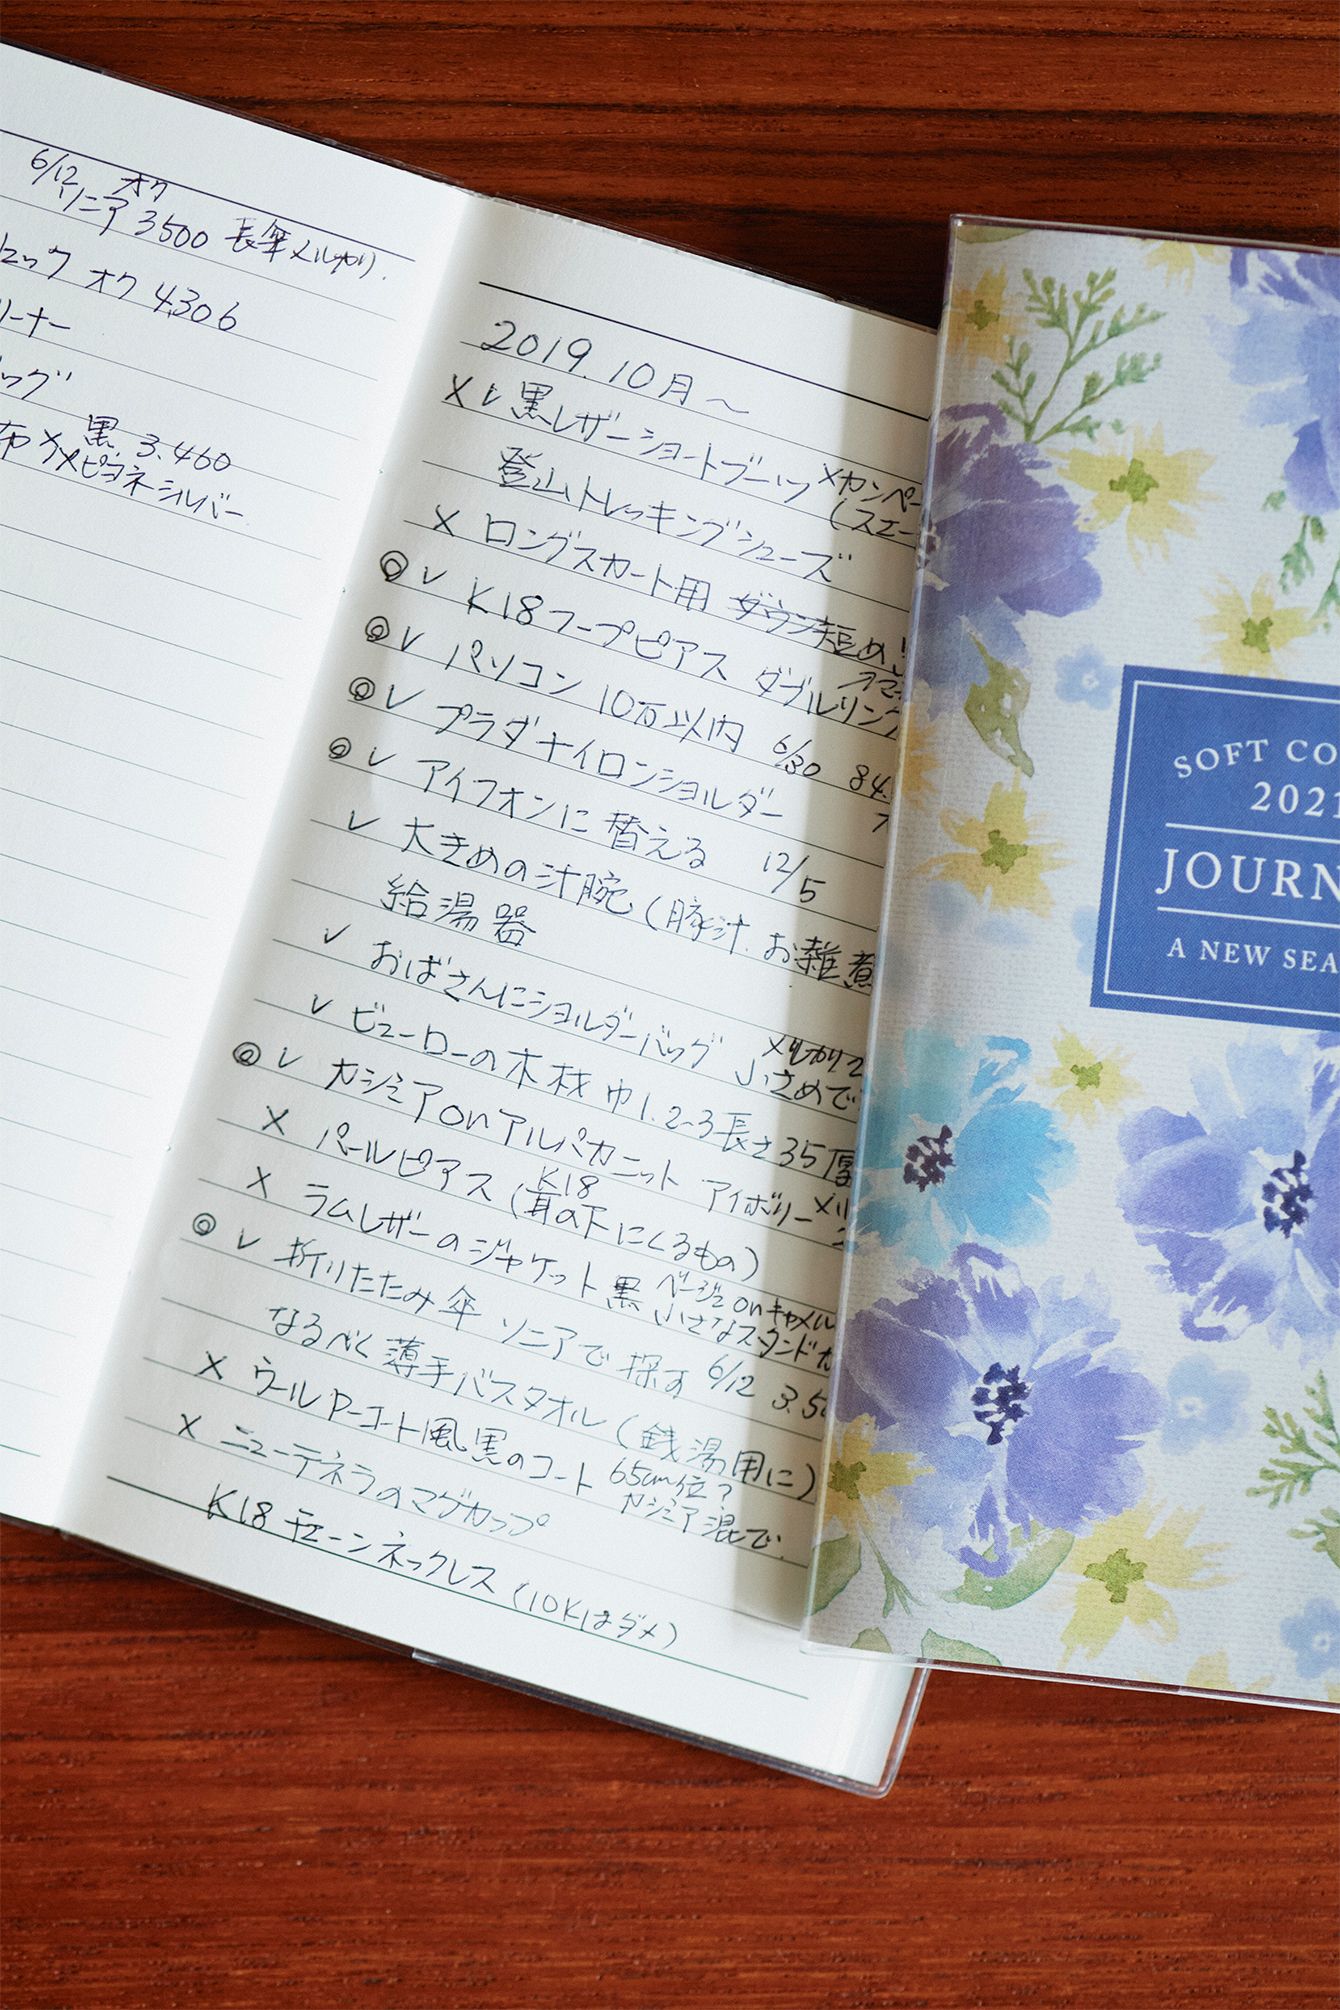 6/12 オク
ソニア 3500 長傘メルカリ.
ック オク 4,306
リーナー
ッグ
布 黒 3.460
ピヨネ シルバー
2019.10月〜
× ✓ 黒レザーショートブーツ ×カンペー
(スエー
登山トレッキングシューズ
× ロングスカート用 ダウン短め
◎ ✓ K18フープピアス ダブルリング
◎ ✓ パソコン 10万以内 6/30 84.
◎ ✓ プラダナイロンショルダー
◎ ✓ アイフォンに替える 12/5
✓ 大きめの汁腕(豚汁.お雑煮
給湯器
✓ おばさんにショルダーバッグ メルカリ
小さめで
✓ ビューローの木材 巾1.2-3長さ35厚
◎ ✓ カシミアonアルパカニット アイボリー メル
× パールピアス(K18
耳の下にくるもの)
× ラムレザーのジャケット黒 ベージュonキャメル
小さなスタンドカ
◎ ✓ 折りたたみ傘 ソニアで探す 6/12 3.50
なるべく薄手バスタオル(銭湯用に)
× ウールPコート風黒のコート 65cm位?
カシミア混で.
× ニューテネラのマグカップ
K18チェーンネックレス(10Kはダメ)
SOFT CO
2021
JOURN
A NEW SEA